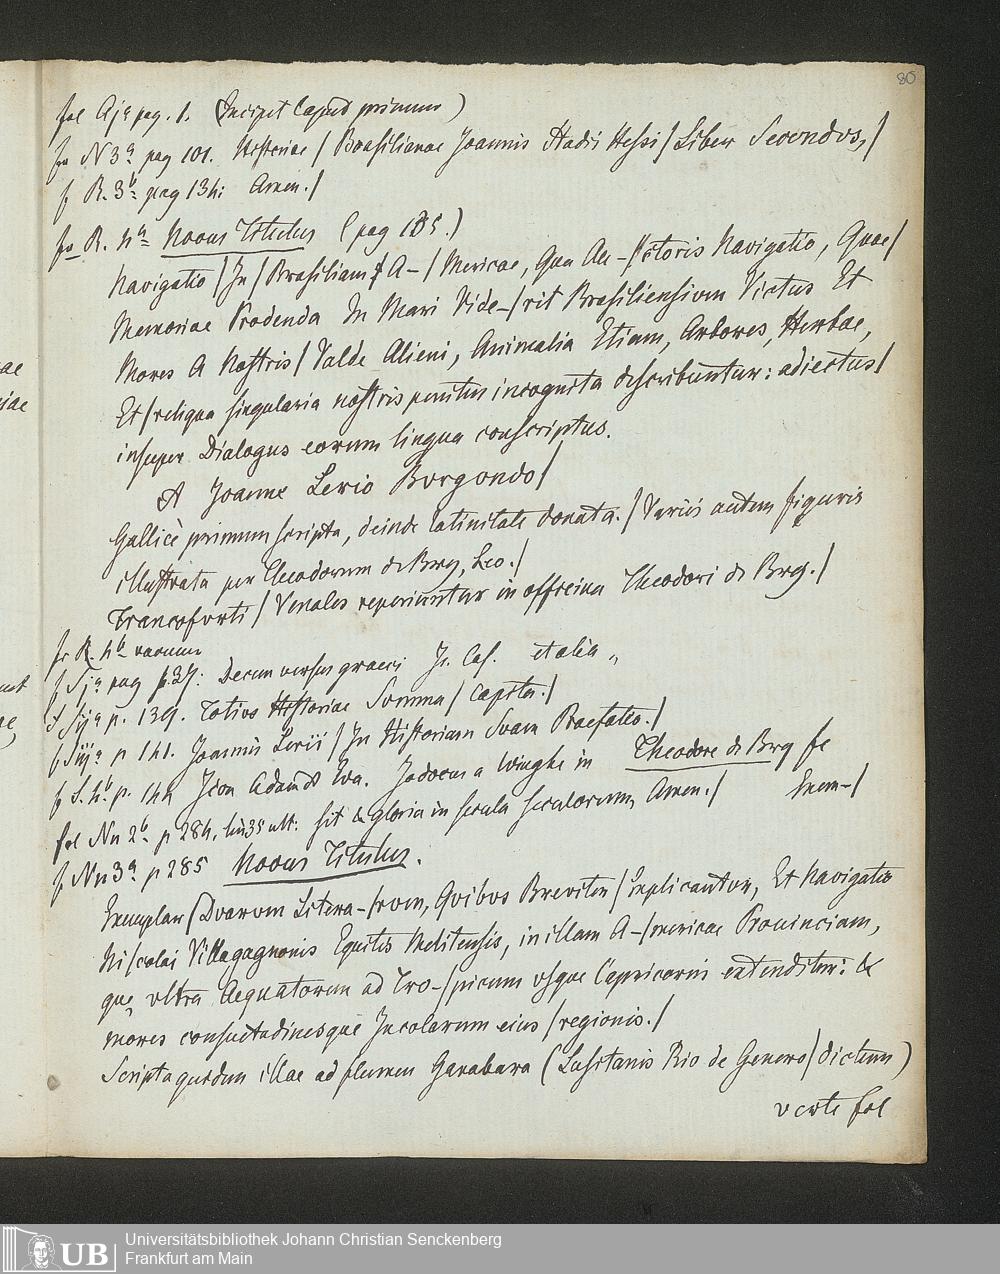 80
fol Aja pag. 1. (Incipit Caput primum)
fo N3a pag 101. Historiae / Brasilianae Joannis Stadii Hessi / Liber Secondvs, /
f R. 3b pag 134: Amen. /
fo R. 4a Novus Titulus (pag 135.)
Navigatio / In / Brasiliam A- / mericae, Qua Au- / ctoris Navigatio, Quae /
Memoriae Prodenda In Mari Vide- / rit Brasiliensivm Victus Et
Mores A Nostris / Valde Alieni, Animalia Etiam, Arbores, Herbae,
Et / reliqua singularia nostris penitus incognita describuntur: adiectus /
insuper Dialogus eorum lingua conscriptus.
A Joanne Lerio Bvrgondo /
Gallicè primum scripta, deinde latinitate donata. / Variis autem figuris
illustrata per Theodorum de Bry, Leo. /
Francofvrti / Venales reperiuntur in officina Theodori de Bry. /
fo R 4b vacuum
f Sja pag 137: Decem versus graeci Js. Cas. et alia
f Sija p. 139. Totivs Historiae Svmma / Capita. /
f Siija p 141. Joannis Lerii / In Historiam Svam Praefatio. /
f S. 4b p. 144 Icon Adam Eva. Jodocus a Winghe in Theodore de Bry fe
fol Nn 2b p 284, lin 35 ult: sit & gloria in secula seculorum, Amen. / Exem- /
f Nn 3a p 285 Novus Titulus.
Exemplar / Dvarvm Litera- / rvm, Qvibvs Breviter / Explicantvr, Et Navigatio
Ni / colai Villagagnonis Equitis Melitensis, in illam A- / mericae Prouinciam,
quę vltra Aequatorem ad Tro- / picum vsque Capricorni extenditur: &
mores consuetudinesque Incolarum eius / regionis. /
Scripta quędam illae ad flumen Ganabara (Lusitanis Rio de Genero / dictum)
verte fol
UB
Universitätsbibliothek Johann Christian Senckenberg
Frankfurt am Main